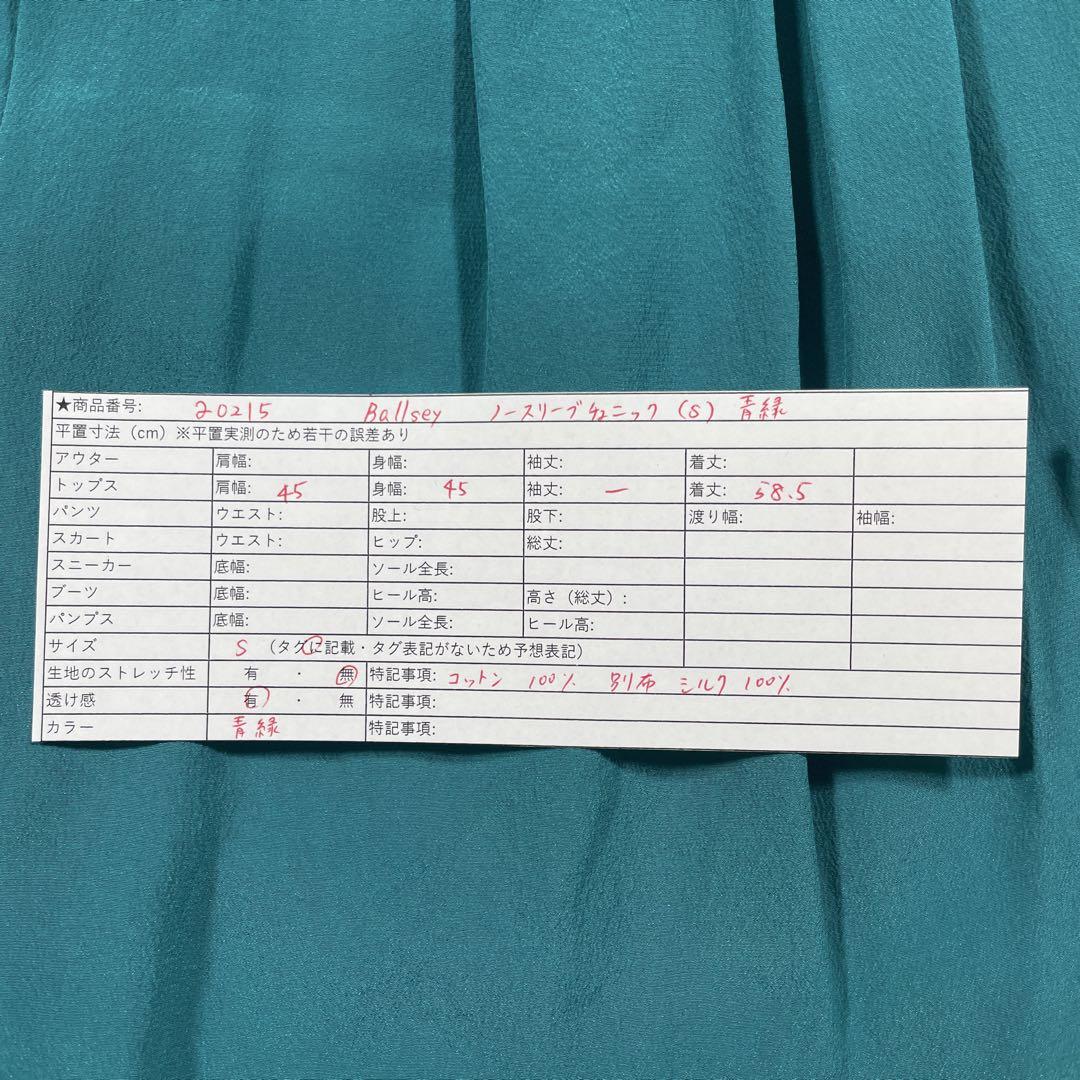 ★商品番号: 20215 Ballsey ノースリーブチュニック (S) 青緑
平置寸法（cm）※平置実測のため若干の誤差あり
アウター 肩幅: 身幅: 袖丈: 着丈:
トップス 肩幅: 45 身幅: 45 袖丈: ー 着丈: 58.5
パンツ ウエスト: 股上: 股下: 渡り幅: 裾幅:
スカート ウエスト: ヒップ: 総丈:
スニーカー 底幅: ソール全長:
ブーツ 底幅: ヒール高: 高さ（総丈）:
パンプス 底幅: ソール全長: ヒール高:
サイズ S （タグに記載・タグ表記がないため予想表記）
生地のストレッチ性 有 ・ 無 特記事項: コットン 100% 別布 シルク 100%
透け感 有 ・ 無 特記事項:
カラー 青緑 特記事項: